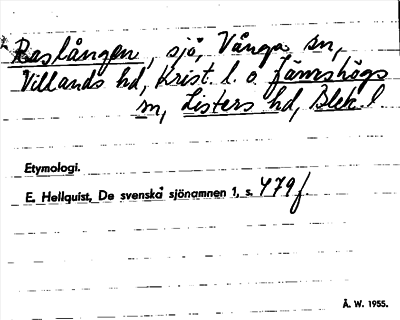 Raslången, sjö, Vånga sn,
Villands hd, Krist. l. o. Jämshögs
sn, Listers hd, Blek. l.
Etymologi.
E. Hellquist, De svenska sjönamnen 1, s. 479 f.
Å. W. 1955.